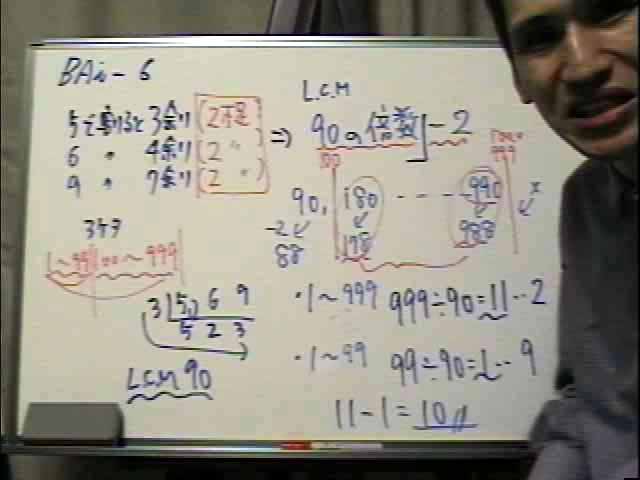 BAi-6
L.C.M
5で割ると 3余り (2不足)
6 〃 4余り (2 〃)
9 〃 7余り (2 〃)
⇒ 90の倍数 -2
100
999
90, 180 ---- 990 x
-2
88 178 988
3ケタ
1~99 100~999
3 5, 6 9
5 2 3
LCM 90
・1~999 999÷90=11…2
・1~99 99÷90=1…9
11-1=10